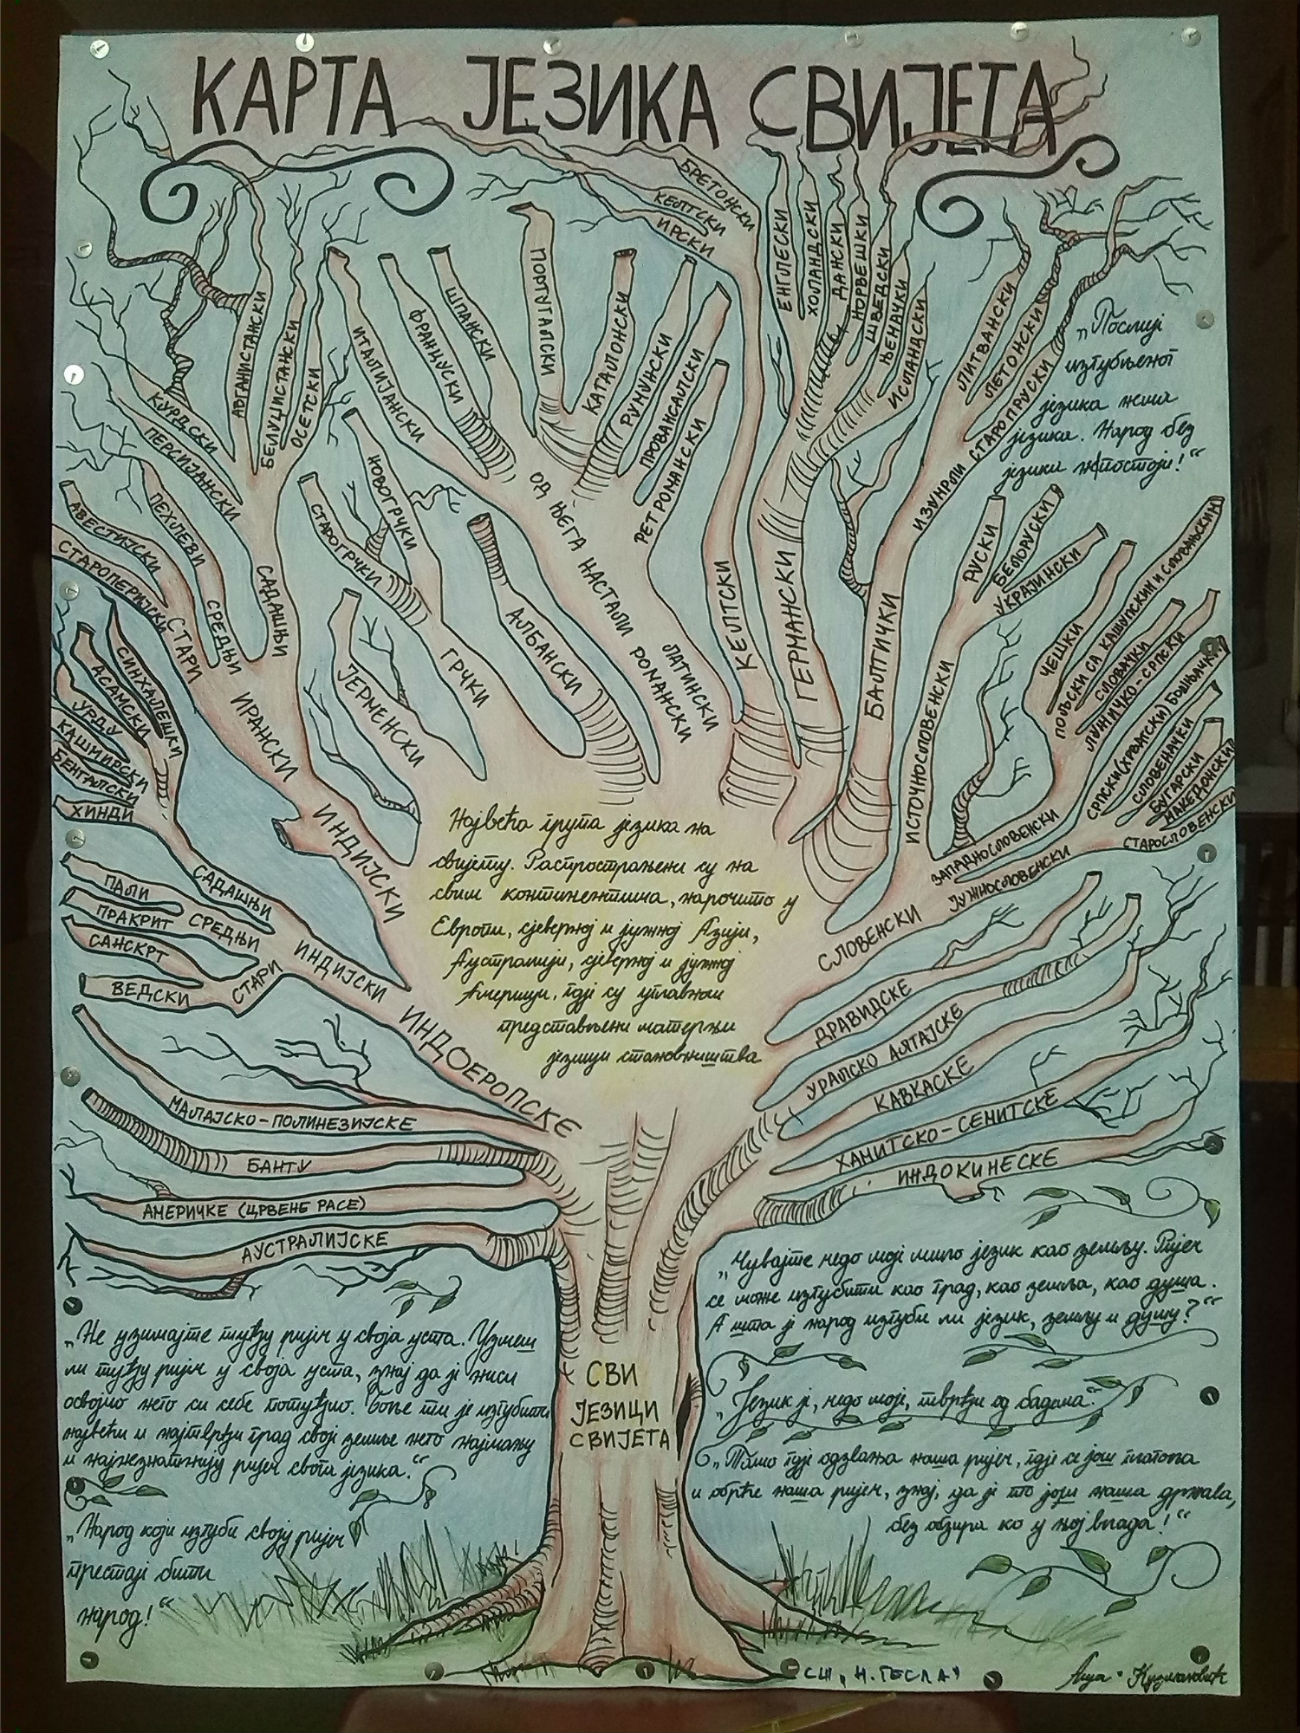 КАРТА ЈЕЗИКА СВИЈЕТА
БРЕТОНСКИ
КЕЛТСКИ
ИРСКИ
ЕНГЛЕСКИ
ХОЛАНДСКИ
ДАНСКИ
НОРВЕШКИ
ШВЕДСКИ
ЊЕМАЧКИ
ИСЛАНДСКИ
ЛИТВАНСКИ
ЛЕТОНСКИ
ИЗУМРЛИ СТАРОПРУСКИ
„Послије
изгубљеног
језика нема
језика. Народ без
језика не постоји!“
АВГАНИСТАНСКИ
БЕЛУЏИСТАНСКИ
ОСЕТСКИ
КУРДСКИ
ПЕРСИЈАНСКИ
САДАШЊИ
ПЕХЛЕВИ
СРЕДЊИ
АВЕСТИЈСКИ
СТАРОПЕРИЈСКИ
СТАРИ
ИРАНСКИ
ИТАЛИЈАНСКИ
ФРАНЦУСКИ
ШПАНСКИ
ПОРТУГАЛСКИ
КАТАЛОНСКИ
РУМУНСКИ
ПРОВАНСАЛСКИ
РЕТРОМАНСКИ
ОД ЊЕГА НАСТАЛИ РОМАНСКИ
ЛАТИНСКИ
НОВОГРЧКИ
СТАРОГРЧКИ
ГРЧКИ
АЛБАНСКИ
ЈЕРМЕНСКИ
КЕЛТСКИ
ГЕРМАНСКИ
БАЛТИЧКИ
РУСКИ
БЕЛОРУСКИ
УКРАЈИНСКИ
ИСТОЧНОСЛОВЕНСКИ
ЧЕШКИ
ПОЉСКИ СА КАШУПСКИМ И СЛОВЊНСКИМ
СЛОВАЧКИ
ЛУЖИЧКО-СРПСКИ
ЗАПАДНОСЛОВЕНСКИ
СРПСКИ (ХРВАТСКИ) БОШЊАЧКИ
СЛОВЕНАЧКИ
БУГАРСКИ
МАКЕДОНСКИ
СТАРОСЛОВЕНСКИ
ЈУЖНОСЛОВЕНСКИ
СЛОВЕНСКИ
СИНХАЛЕШКИ
АСАМСКИ
УРДУ
КАШМИРСКИ
БЕНГАЛСКИ
ХИНДИ
САДАШЊИ
ПАЛИ
ПРАКРИТ
СРЕДЊИ
САНСКРТ
ВЕДСКИ
СТАРИ
ИНДИЈСКИ
ИНДИЈСКИ
ИНДОЕРОПСКЕ
Највећа група језика на
свијету. Распрострањени су на
свим континентима, нарочито у
Европи, сјеверној и јужној Азији,
Аустралији, сјеверној и јужној
Америци, гдје су углавном
представљени матерњи
језици становништва
ДРАВИДСКЕ
УРАЛСКО АЛТАЈСКЕ
КАВКАСКЕ
ХАМИТСКО-СЕМИТСКЕ
ИНДОКИНЕСКЕ
МАЛАЈСКО-ПОЛИНЕЗИЈСКЕ
БАНТУ
АМЕРИЧКЕ (ЦРВЕНЕ РАСЕ)
АУСТРАЛИЈСКЕ
СВИ
ЈЕЗИЦИ
СВИЈЕТА
„Не узимајте туђу ријеч у своја уста. Узмеш
ли туђу ријеч у своја уста, знај да је ниси
освојио него си себе потуђио. Боље ти је изгубити
највећи и најтврђи град своје земље него најмању
и најнезнатнију ријеч свога језика.“
„Народ који изгуби своју ријеч
престаје бити
народ!“
„Чувајте чедо моје мило језик као земљу. Ријеч
се може изгубити као град, као земља, као душа.
А шта је народ изгуби ли језик, земљу и душу?“
„Језик је, чедо моје, тврђи од бадема.“
„Тамо гдје одзвања наша ријеч, гдје се још глагола
и обрће наша ријеч, знај, да је то још наша држава,
без обзира ко у њој влада!“
СШ „Н. ТЕСЛА“